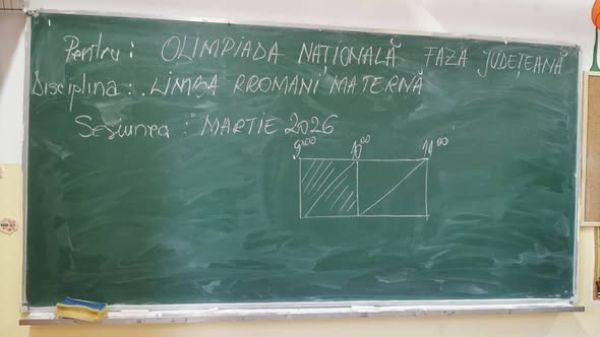 Pentru: OLIMPIADA NAȚIONALĂ FAZA JUDEȚEANĂ
Disciplina: LIMBA RROMANI MATERNĂ
Sesiunea: MARTIE 2026
9:00 10:00 11:00